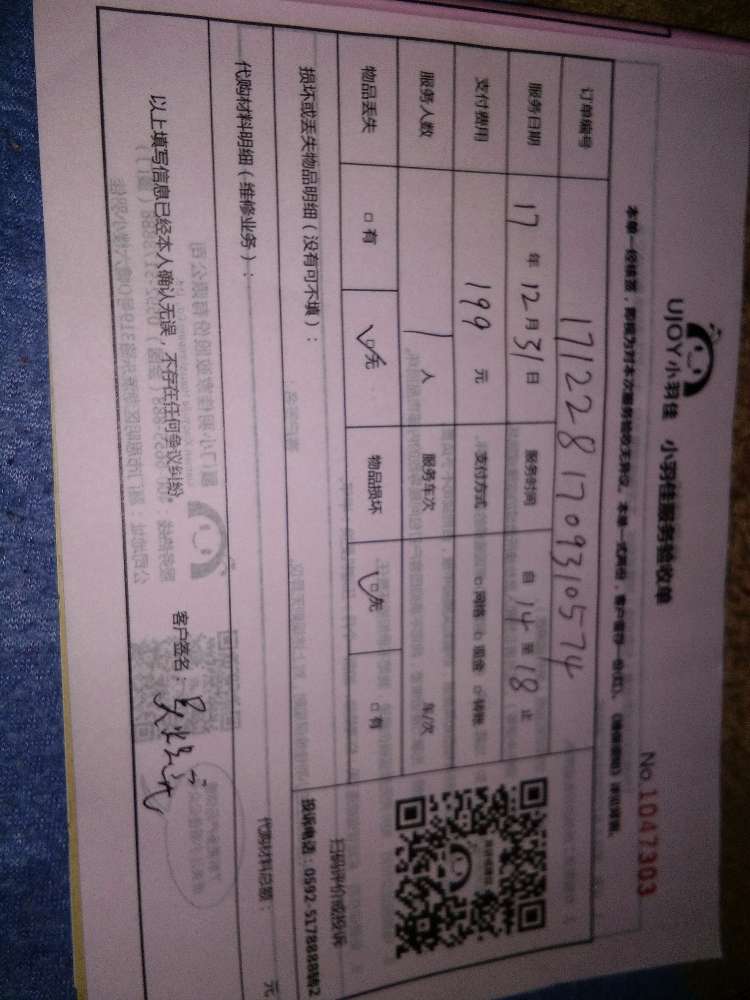 UJOY小羽佳 小羽佳服务验收单
No.1047303
本单一经签署,即视为对本次服务验收无异议。本单一式两份,客户留存一份(红)。
订单编号 1712281709310574
服务日期 17 年 12 月 31 日 服务时间 自 14 至 18 止
支付费用 199 元 支付方式 □网络 □现金 □转账
服务人数 1 人 服务车次 车/次
物品丢失 □有 ☑无 物品损坏 ☑无 □有
扫码评价或投诉
投诉电话:0592-5178888转2
损坏或丢失物品明细(没有可不填):
代购材料明细(维修业务):
代购材料总额: 元
以上填写信息已经本人确认无误,不存在任何争议纠纷。
客户签名: